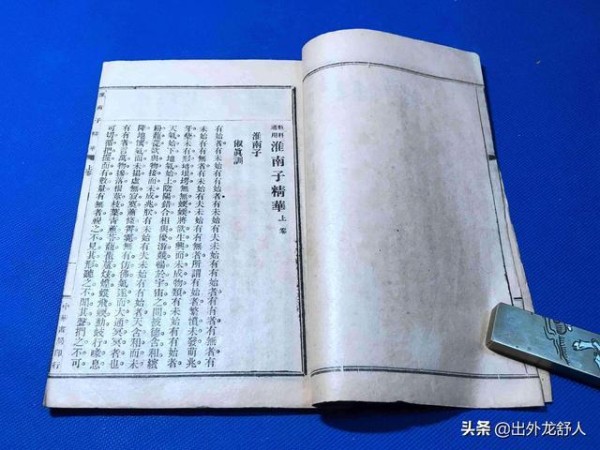 教科適用 淮南子精華 上卷
淮南子
俶眞訓
有始者有未始有有始者有未始有夫未始有有始者有有者有無者有
未始有有無者有未始有夫未始有有無者所謂有始者繁憤未發萌兆
牙櫱未有形埒垠堮無無蠕蠕將欲生興而未成物類有未始有有始者
天氣始下地氣始上陰陽錯合相與優游競暢於宇宙之間被德含和繽
紛蘢蓯欲與物接而未成兆朕有未始有夫未始有有始者天含和而未
降地懷氣而未揚虛無寂寞蕭條霄雿無有仿佛氣遂而大通冥冥者也
有有者言萬物摻落根莖枝葉青蔥苓蘢萑蔰炫煌蠉飛蝡動蚑行噲息
可切循把握而有數量有無者視之不見其形聽之不聞其聲捫之不可
中華書局印行
头条 @出外龙舒人